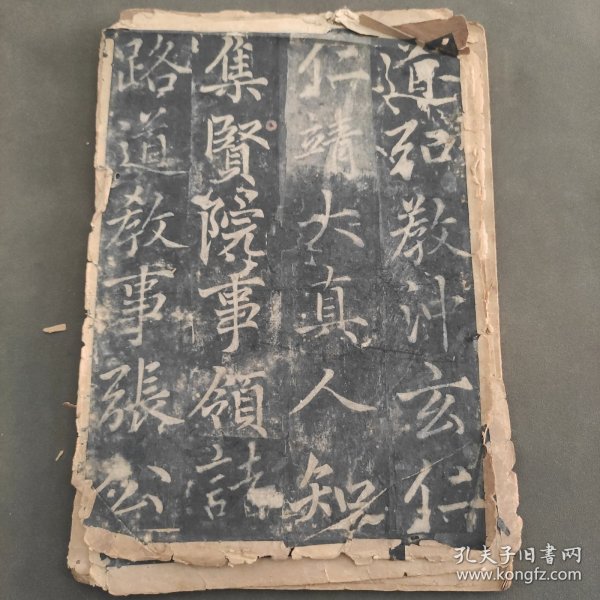 道弘教沖玄仁
仁靖大真人知
集賢院事領諸
路道教事張公
孔夫子旧书网
www.kongfz.com